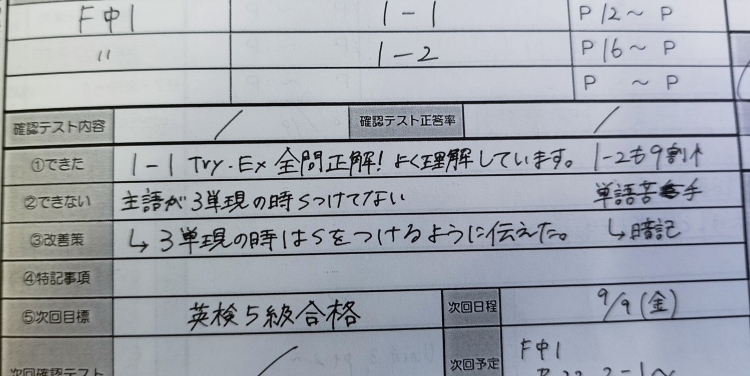 F中1 1-1 P12〜 P
〃 1-2 P16〜 P
P 〜 P
確認テスト内容 / 確認テスト正答率 /
①できた 1-1 Try・Ex 全問正解! よく理解しています。 1-2も9割↑
②できない 主語が3単現の時sつけてない 単語苦手
③改善策 ↳3単現の時はsをつけるように伝えた。 ↳暗記
④特記事項
⑤次回目標 英検5級合格 次回日程 9/9(金)
次回確認テスト / 次回予定 F中1